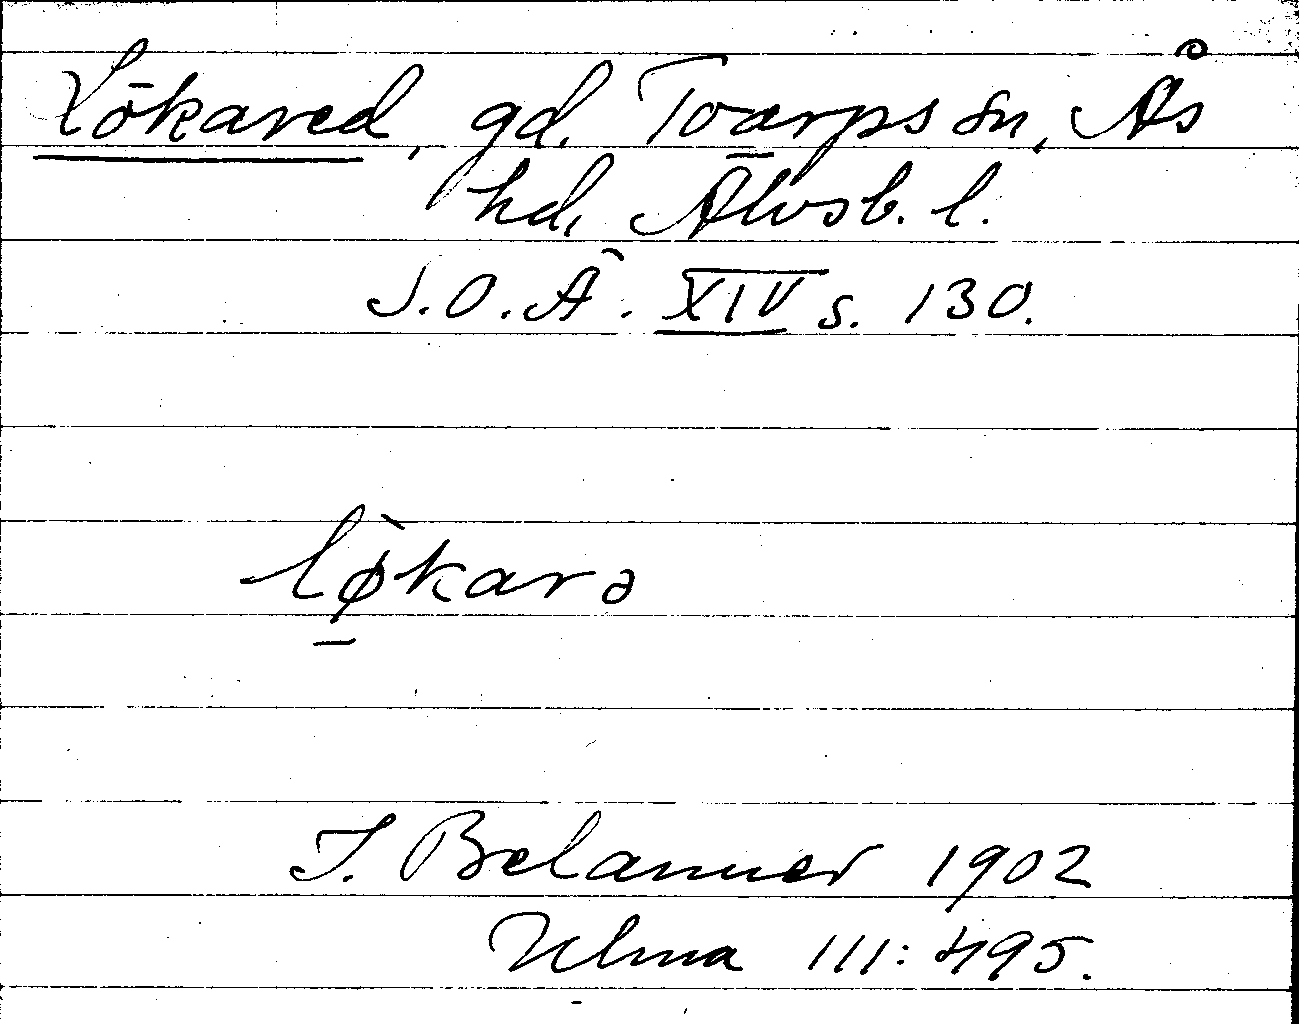 Lökared, gd. Toarps sn, Ås
hd, Älvsb. l.
S.O.Ä. XIV s. 130.
lø̀karə
I. Belanner 1902
Ulma 111:495.